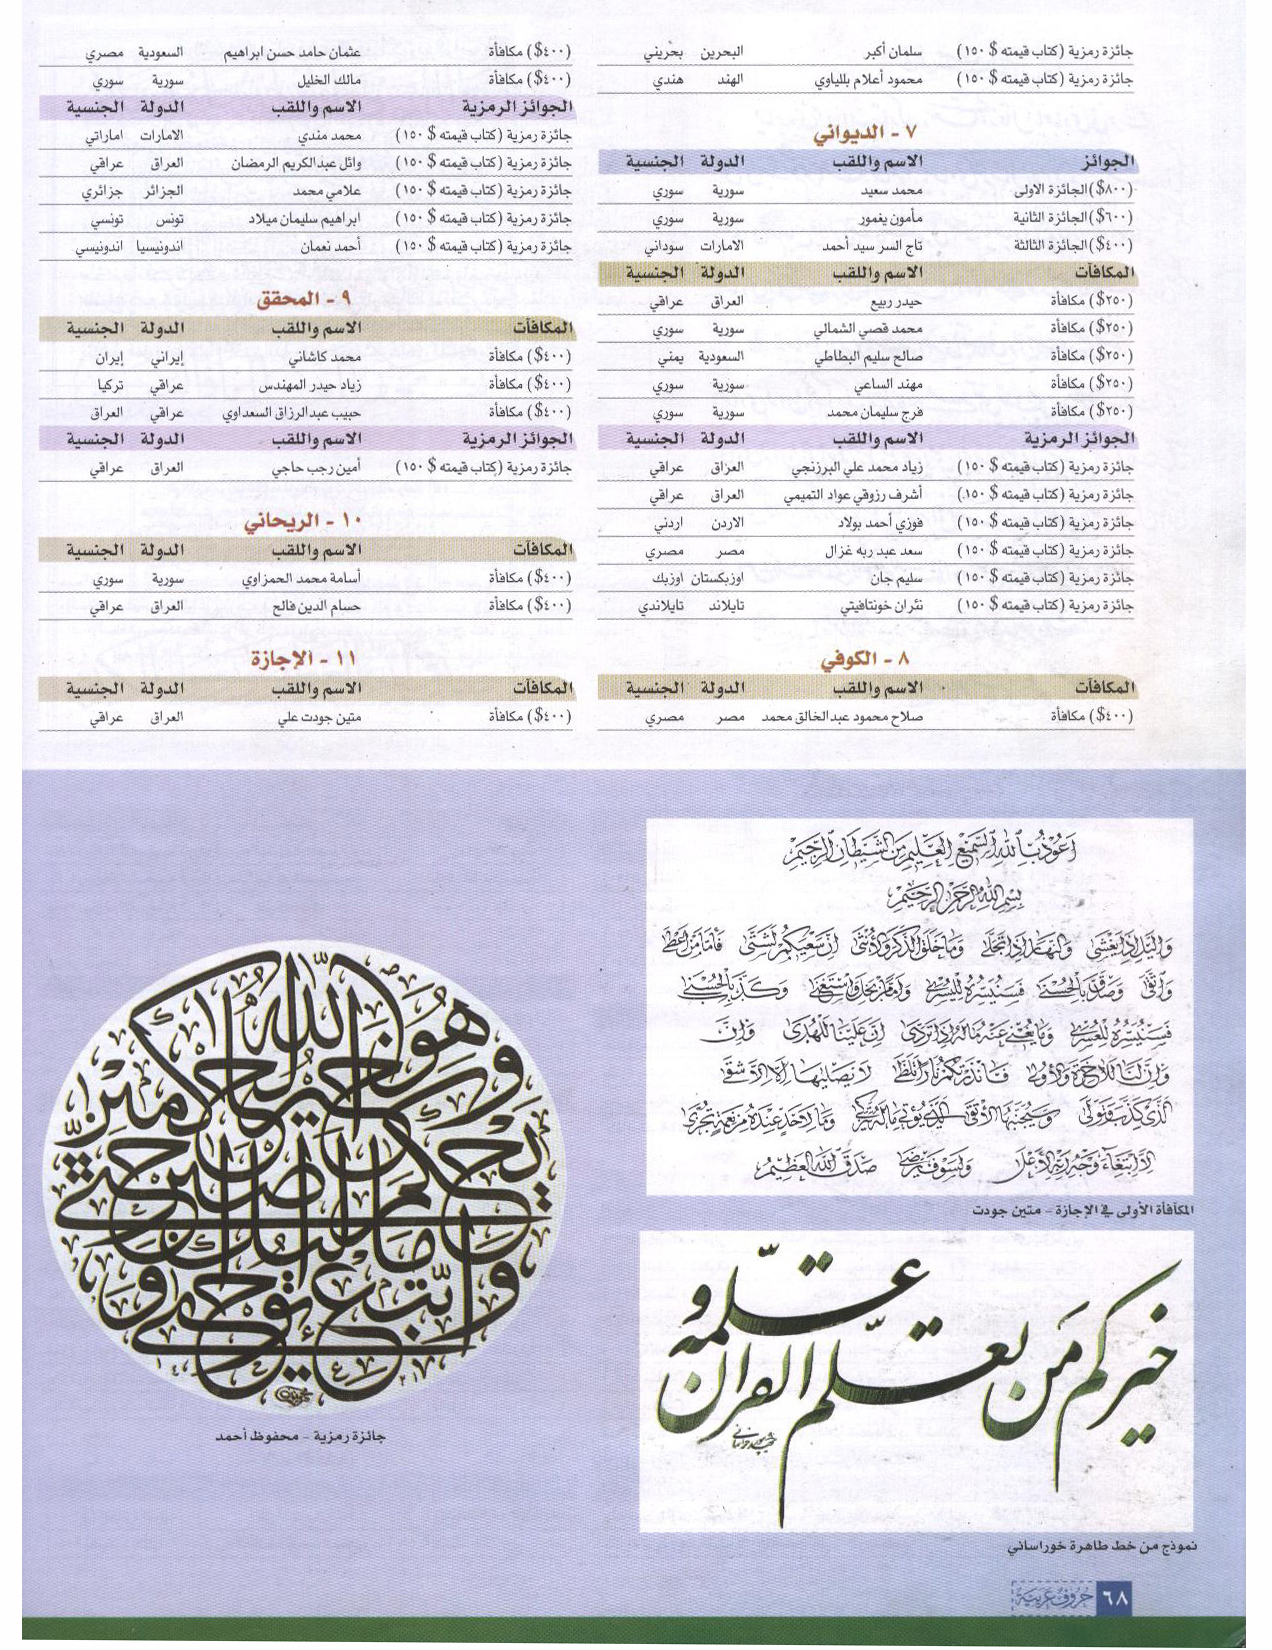 جائزة رمزية (كتاب قيمته $ ١٥٠) سلمان أكبر البحرين بحريني
جائزة رمزية (كتاب قيمته $ ١٥٠) محمود أعلام بللياوي الهند هندي
٧ - الديواني
الجوائز الاسم واللقب الدولة الجنسية
(٨٠٠$) الجائزة الاولى محمد سعيد سورية سوري
(٦٠٠$) الجائزة الثانية مأمون يغمور سورية سوري
(٤٠٠$) الجائزة الثالثة تاج السر سيد أحمد الامارات سوداني
المكافآت الاسم واللقب الدولة الجنسية
(٢٥٠$) مكافأة حيدر ربيع العراق عراقي
(٢٥٠$) مكافأة محمد قصي الشمالي سورية سوري
(٢٥٠$) مكافأة صالح سليم البطاطي السعودية يمني
(٢٥٠$) مكافأة مهند الساعي سورية سوري
(٢٥٠$) مكافأة فرج سليمان محمد سورية سوري
الجوائز الرمزية الاسم واللقب الدولة الجنسية
جائزة رمزية (كتاب قيمته $ ١٥٠) زياد محمد علي البرزنجي العراق عراقي
جائزة رمزية (كتاب قيمته $ ١٥٠) أشرف رزوقي عواد التميمي العراق عراقي
جائزة رمزية (كتاب قيمته $ ١٥٠) فوزي أحمد بولاد الاردن اردني
جائزة رمزية (كتاب قيمته $ ١٥٠) سعد عبد ربه غزال مصر مصري
جائزة رمزية (كتاب قيمته $ ١٥٠) سليم جان اوزبكستان اوزبك
جائزة رمزية (كتاب قيمته $ ١٥٠) نئران خونتافيتي تايلاند تايلاندي
٨ - الكوفي
المكافآت الاسم واللقب الدولة الجنسية
(٤٠٠$) مكافأة صلاح محمود عبد الخالق محمد مصر مصري
(٤٠٠$) مكافأة عثمان حامد حسن ابراهيم السعودية مصري
(٤٠٠$) مكافأة مالك الخليل سورية سوري
الجوائز الرمزية الاسم واللقب الدولة الجنسية
جائزة رمزية (كتاب قيمته $ ١٥٠) محمد مندي الامارات اماراتي
جائزة رمزية (كتاب قيمته $ ١٥٠) وائل عبدالكريم الرمضان العراق عراقي
جائزة رمزية (كتاب قيمته $ ١٥٠) علامي محمد الجزائر جزائري
جائزة رمزية (كتاب قيمته $ ١٥٠) ابراهيم سليمان ميلاد تونس تونسي
جائزة رمزية (كتاب قيمته $ ١٥٠) أحمد نعمان اندونيسيا اندونيسي
٩ - المحقق
المكافآت الاسم واللقب الدولة الجنسية
(٤٠٠$) مكافأة محمد كاشاني إيراني إيران
(٤٠٠$) مكافأة زياد حيدر المهندس عراقي تركيا
(٤٠٠$) مكافأة حبيب عبدالرزاق السعداوي عراقي العراق
الجوائز الرمزية الاسم واللقب الدولة الجنسية
جائزة رمزية (كتاب قيمته $ ١٥٠) أمين رجب حاجي العراق عراقي
١٠ - الريحاني
المكافآت الاسم واللقب الدولة الجنسية
(٤٠٠$) مكافأة أسامة محمد الحمزاوي سورية سوري
(٤٠٠$) مكافأة حسام الدين فالح العراق عراقي
١١ - الإجازة
المكافآت الاسم واللقب الدولة الجنسية
(٤٠٠$) مكافأة متين جودت علي العراق عراقي
أعوذ بالله السميع العليم من الشيطان الرجيم
بسم الله الرحمن الرحيم
والليل إذا يغشى والنهار إذا تجلى وما خلق الذكر والأنثى إن سعيكم لشتى فأما من أعطى
واتقى وصدق بالحسنى فسنيسره لليسرى وأما من بخل واستغنى وكذب بالحسنى
فسنيسره للعسرى وما يغني عنه ماله إذا تردى إن علينا للهدى وإن
وإن لنا للآخرة والأولى فأنذرتكم نارا تلظى لا يصلاها إلا الأشقى
الذي كذب وتولى وسيجنبها الأتقى الذي يؤتي ماله يتزكى وما لأحد عنده من نعمة تجزى
إلا ابتغاء وجه ربه الأعلى ولسوف يرضى صدق الله العظيم
المكافأة الأولى في الإجازة - متين جودت
خيركم من تعلم القرآن وعلمه
نموذج من خط طاهرة خوراساني
واتبع ما يوحى إليك واصبر حتى يحكم الله وهو خير الحاكمين
جائزة رمزية - محفوظ أحمد
٦٨ حروف عربية